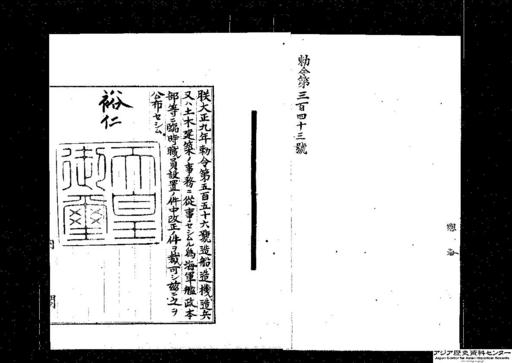 勅令第三百四十三號
朕大正九年勅令第五百五十六號造船造機造兵
又ハ土木建築ノ事務ニ從事セシムル爲海軍艦政本
部等ニ臨時職員設置ノ件中改正ノ件ヲ裁可シ茲ニ之ヲ
公布セシム
裕仁
天皇
御璽
内閣
アジア歴史資料センター
Japan Center for Asian Historical Records